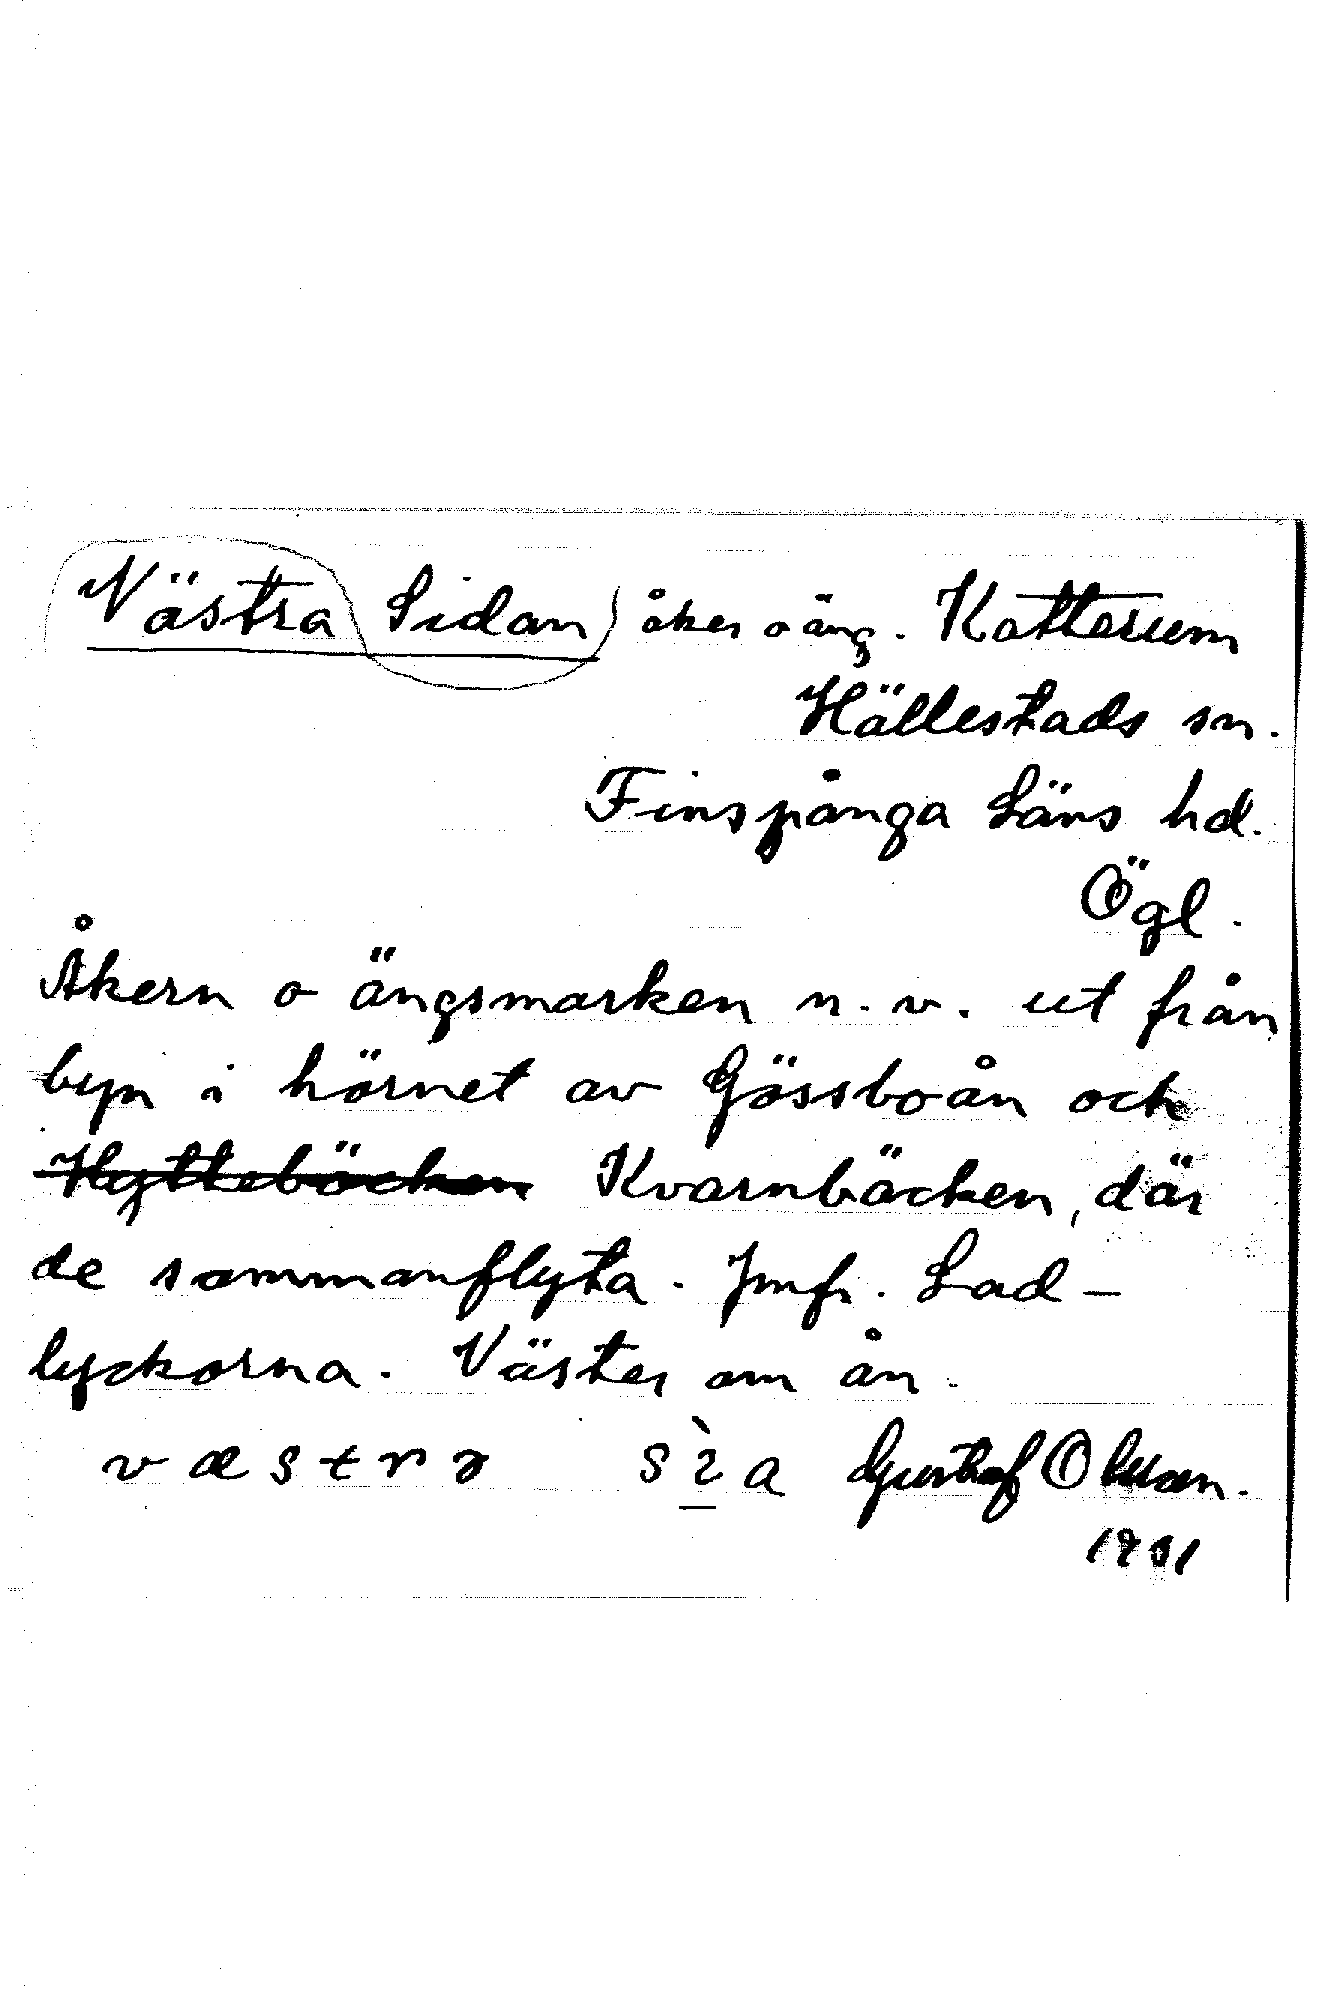 Västra Sidan åker o äng. Katterum
Hällestads sn.
Finspånga Läns hd.
Ögl.
Åkern o ängsmarken n.v. ut från
byn i hörnet av Gössboån och
Hyttebäcken Kvarnbäcken, där
de sammanflyta. Jmfr. Lad-
lyckorna. Väster om ån.
væstrə sìa Gustaf